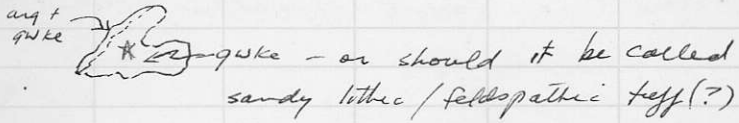 arg +
gwke
gwke - or should it be called
sandy lithic / feldspathic tuff (?)